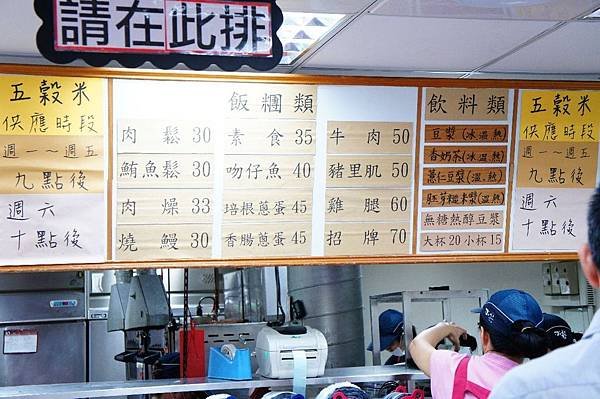 請在此排
五穀米
供應時段
週一～週五
九點後
週六
十點後
飯糰類
肉鬆 30
鮪魚鬆 30
肉燥 33
燒鰻 30
素食 35
吻仔魚 40
培根蔥蛋 45
香腸蔥蛋 45
牛肉 50
豬里肌 50
雞腿 60
招牌 70
飲料類
豆漿(冰溫熱)
香奶茶(冰溫熱)
薏仁豆漿(溫熱)
胚芽糙米漿(溫熱)
無糖熱醇豆漿
大杯20小杯15
五穀米
供應時段
週一～週五
九點後
週六
十點後